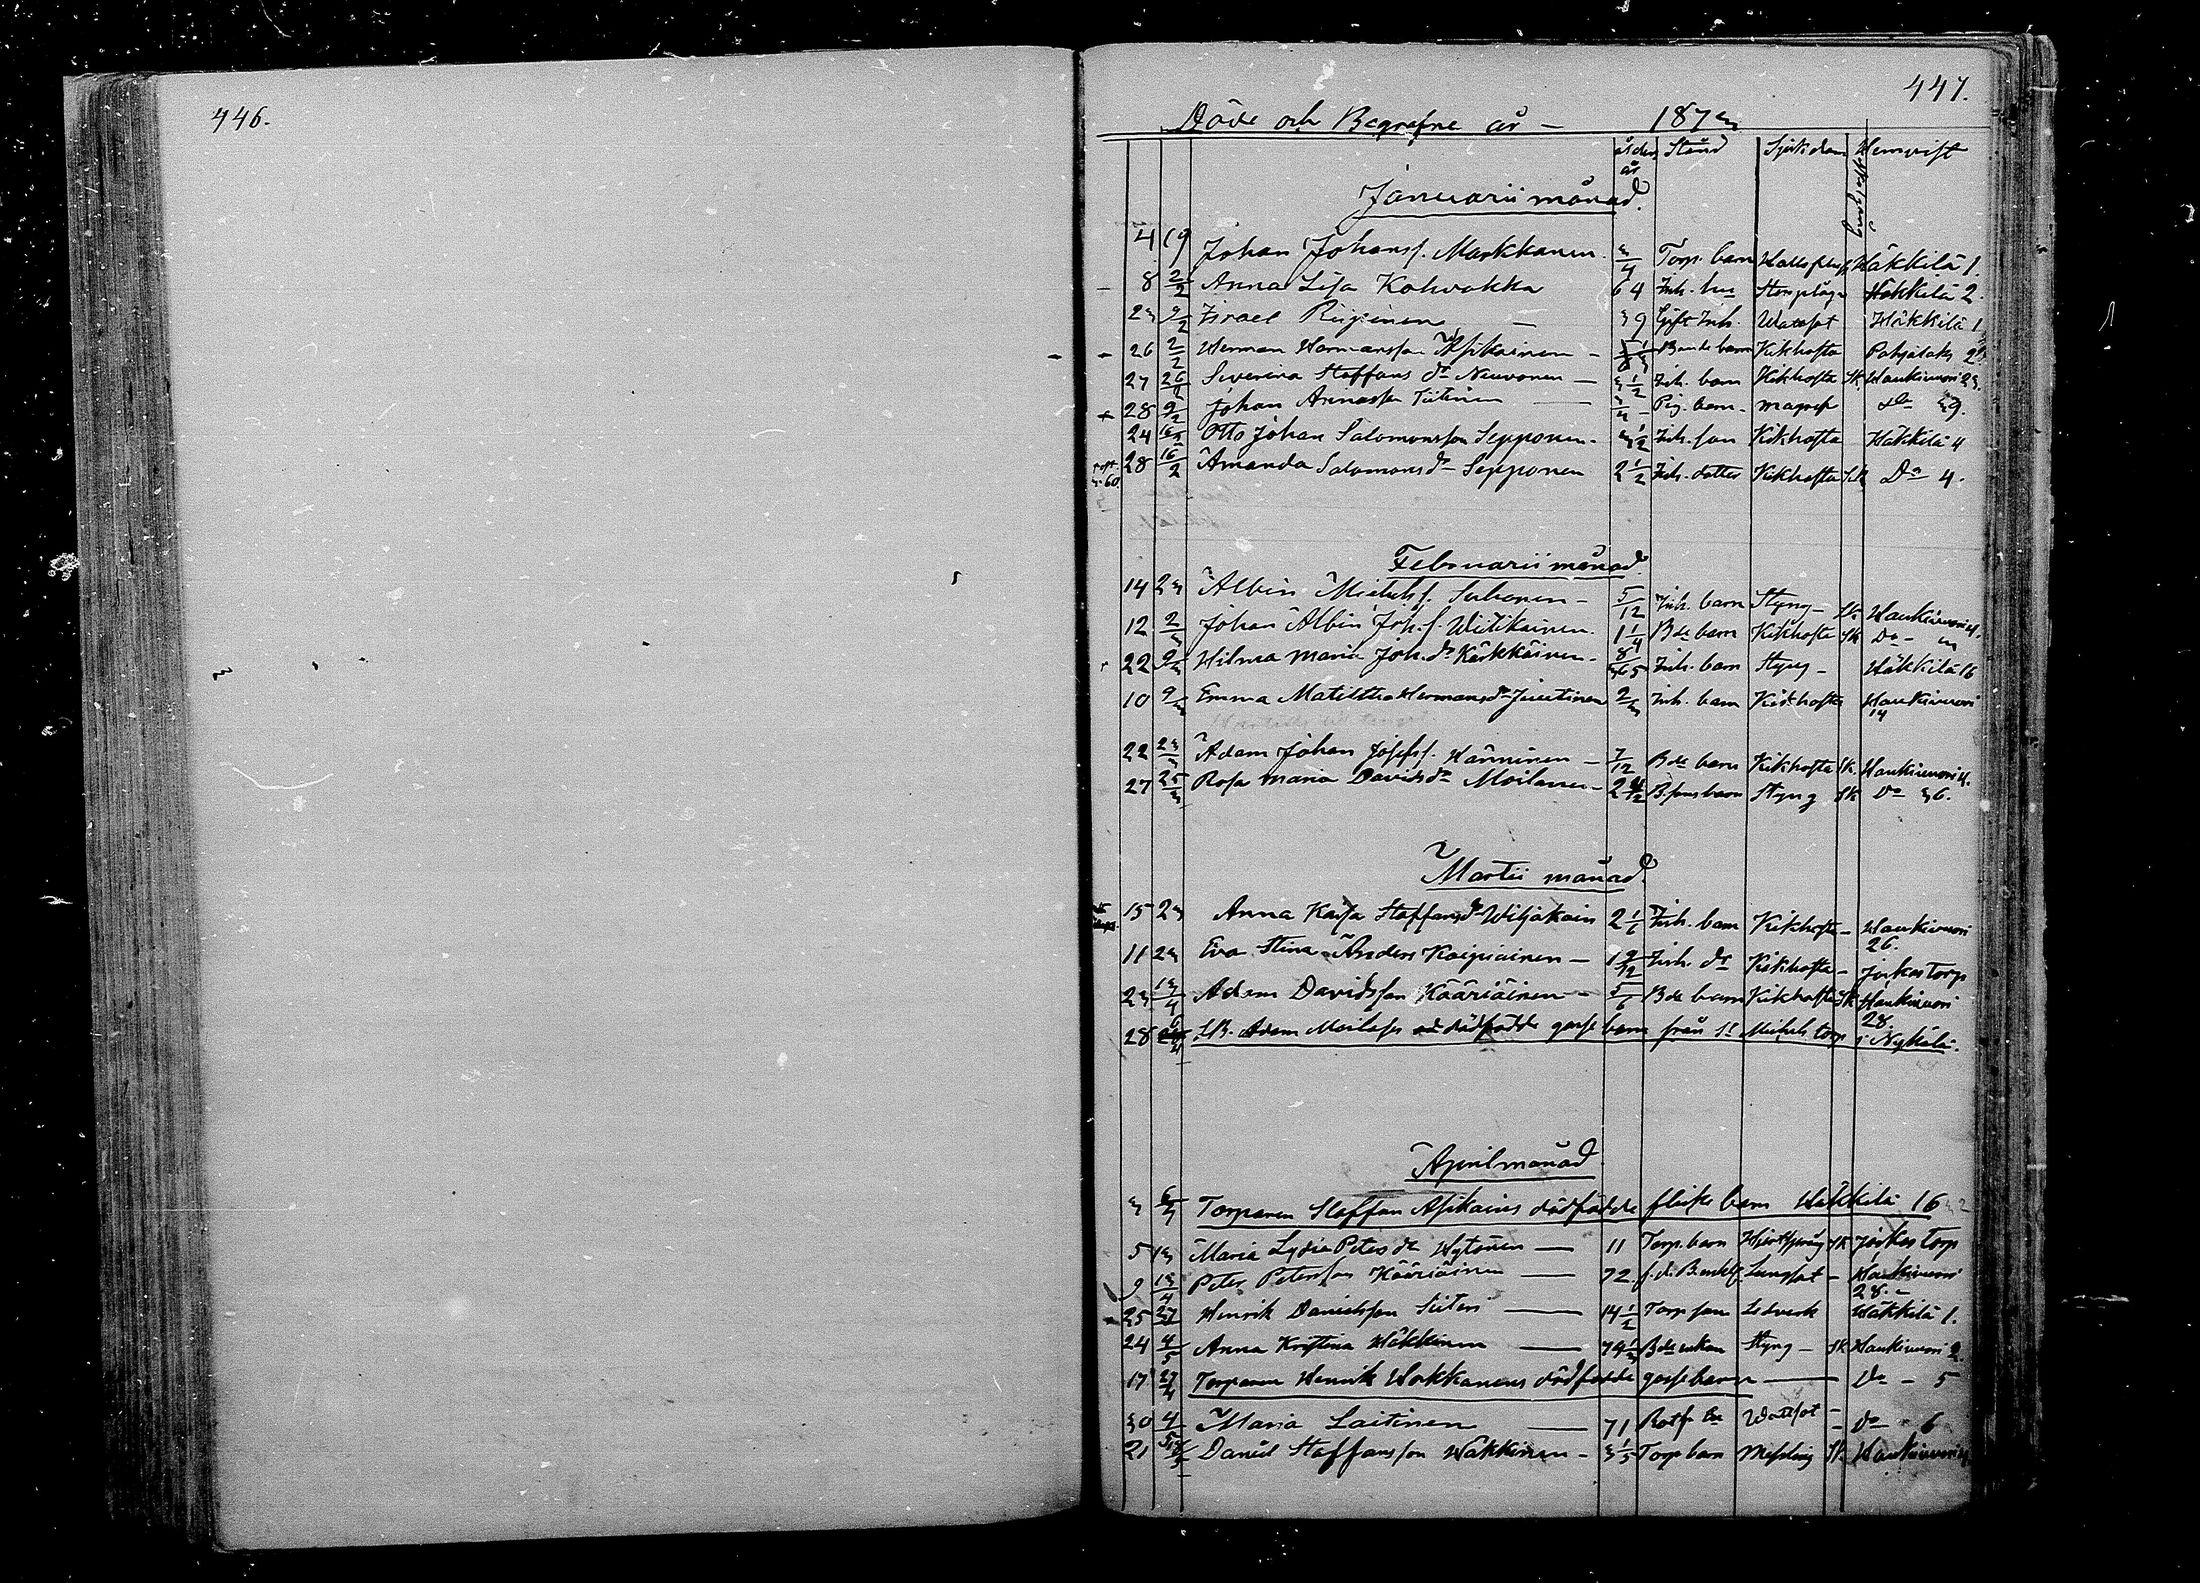 446.
447.
Döde och Begrafne år – 1873
ålder år Stånd Sjukdom Hemvist
Januarii månad.
4 19 Johan Johanss. Markkanen 3/4 Torp. barn Häkkilä 1.
8 2/2 Anna Lisa Kohvakka 64 Inh. hu Häkkilä 2.
23 9/2 Israel 39 Gift Inh. Wattsot Häkkilä 1
26 2/2 Herman Hermansson Asikainen Bonde barn Kikhosta Pohjalaks
27 26/2 Severina Staffans dr Neuvonen – 3 1/2 Inh. barn Kikhosta Sk Haukivuori 23.
28 9/2 Johan Annasson Tiitinen Pig. barn – magref do 39.
24 16/2 Otto Johan Salomonsson Sepponen – 3 1/2 Inh. son Kikhosta Häkkilä 4
28 16/2 Amanda Salomons dr Sepponen 2 1/2 Inh. dotter Kikhosta Do 4.
Februarii månad.
14 23 Albin Michels s. Suhonen – 5/12 Inh. barn Styng – Sk Haukivuori 4.
12 2/3 Johan Albin Joh. s. Witikainen. 1 1/4 Bde barn Kikhosta Sk Do –
22 9/3 Hilma Maria Joh. dr Kärkkäinen – 8/365 Inh. barn Styng – Häkkilä 16
10 9/3 Emma Matiltha Hermans dr Juutinen 2/3 Inh. barn Kikhosta Haukivuori
14
22 23/3 Adam Johan Josefs s. Hänninen – 7/12 Bde barn Kikhosta Sk. Haukivuori 4.
27 25/3 Rosa Maria Davids dr Moilanen – 2 B. sons barn Styng Sk Do 36.
Martii månad.
15 23 Anna Kaisa Staffans dr Wiljakain 2 1/6 Inh. barn Kikhosta – Haukivuori
26.
11 23 Eva Stina Anders Kaipiainen – 1 9/12 Inh. dr Kikhosta – Jorkas torp
23 13/4 Adam Davidsson Kääriäinen – 5/6 Bde barn Kikhosta Sk Haukivuori
28.
28 6/4 Adam dödfödde gosse barn från St Michels torp i Nykälä.
April månad
3 6/4 Torparen Staffan Asikains dödfödde flicke barn Häkkilä 16
5 13 Maria Lydia Peters dr Hytönen — 11 Torp. barn Sk Jorkas torp
9 13/4 Peter Petersson Kääriäinen — 72 f. d. Lungsot – Haukivuori
28. –
25 27 Henrik Danielsson Siiteri — 14 1/2 Torp son Ledverk Häkkilä 1.
24 4/5 Anna Kristina Häkkinen — 74 1/3 Bde enkan Styng – Sk Haukivuori 2.
17 27/4 Torparen Henrik Hokkanens dödfödde gosse barn — Do – 5
30 4/5 Maria Laitinen — 71 Wattsot – Do 6
21 Daniel Staffansson Häkkinen – 3 1/3 Torp barn Messling Sk. Haukivuori